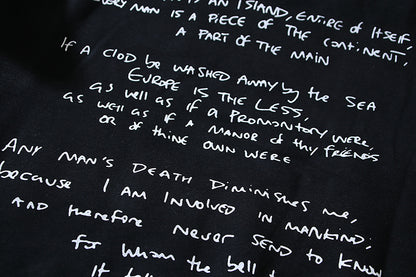 IS AN ISLAND, ENTIRE of ITSELF
EVERY MAN IS A PIECE OF THE CONTINENT,
A PART OF THE MAIN
If A CLOD be WASHED AWAY by the SEA
EUROPE IS THE LESS,
as well as if a PROMONTORY WERE,
as well as if a MANOR of thy friends
OR of thine OWN WERE
ANY MAN'S DEATH DiMiNisHES me,
because I AM INVOLVED IN MANKIND;
AND therefore NEVER SEND to KNOW
for whom the bell
It